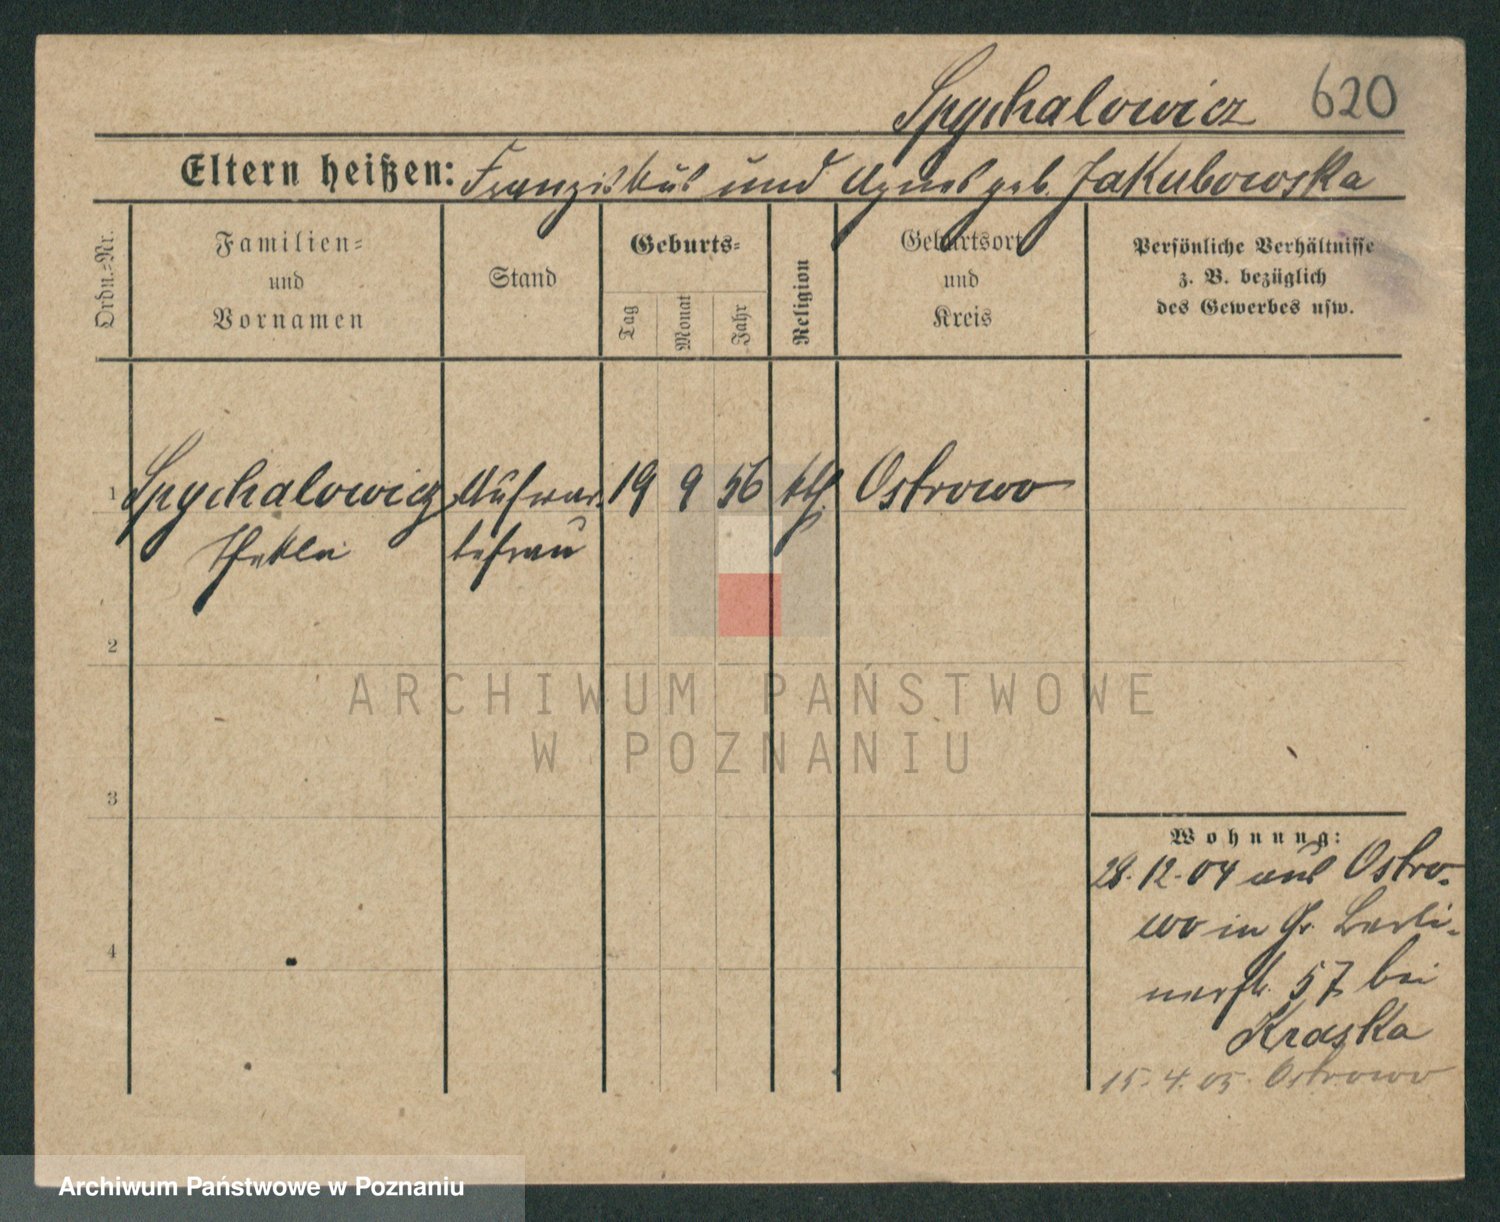 Spychalowicz 620
Eltern heißen: Franziskus und Agnes geb. Jakubowska
Ordn.-Nr.
Familien-
und
Vornamen
Stand
Geburts-
Tag
Monat
Jahr
Religion
Geburtsort
und
Kreis
Persönliche Verhältnisse
z. B. bezüglich
des Gewerbes usw.
1 Spychalowicz Aufwar- 19 9 56 kth. Ostrowo
Thekla tefrau
2
3
4
Wohnung:
28.12.04 aus Ostro-
wo in Gr. Berli-
nerstr. 57 bei
Kraska
15.4.05. Ostrowo
ARCHIWUM PAŃSTWOWE
W POZNANIU
Archiwum Państwowe w Poznaniu